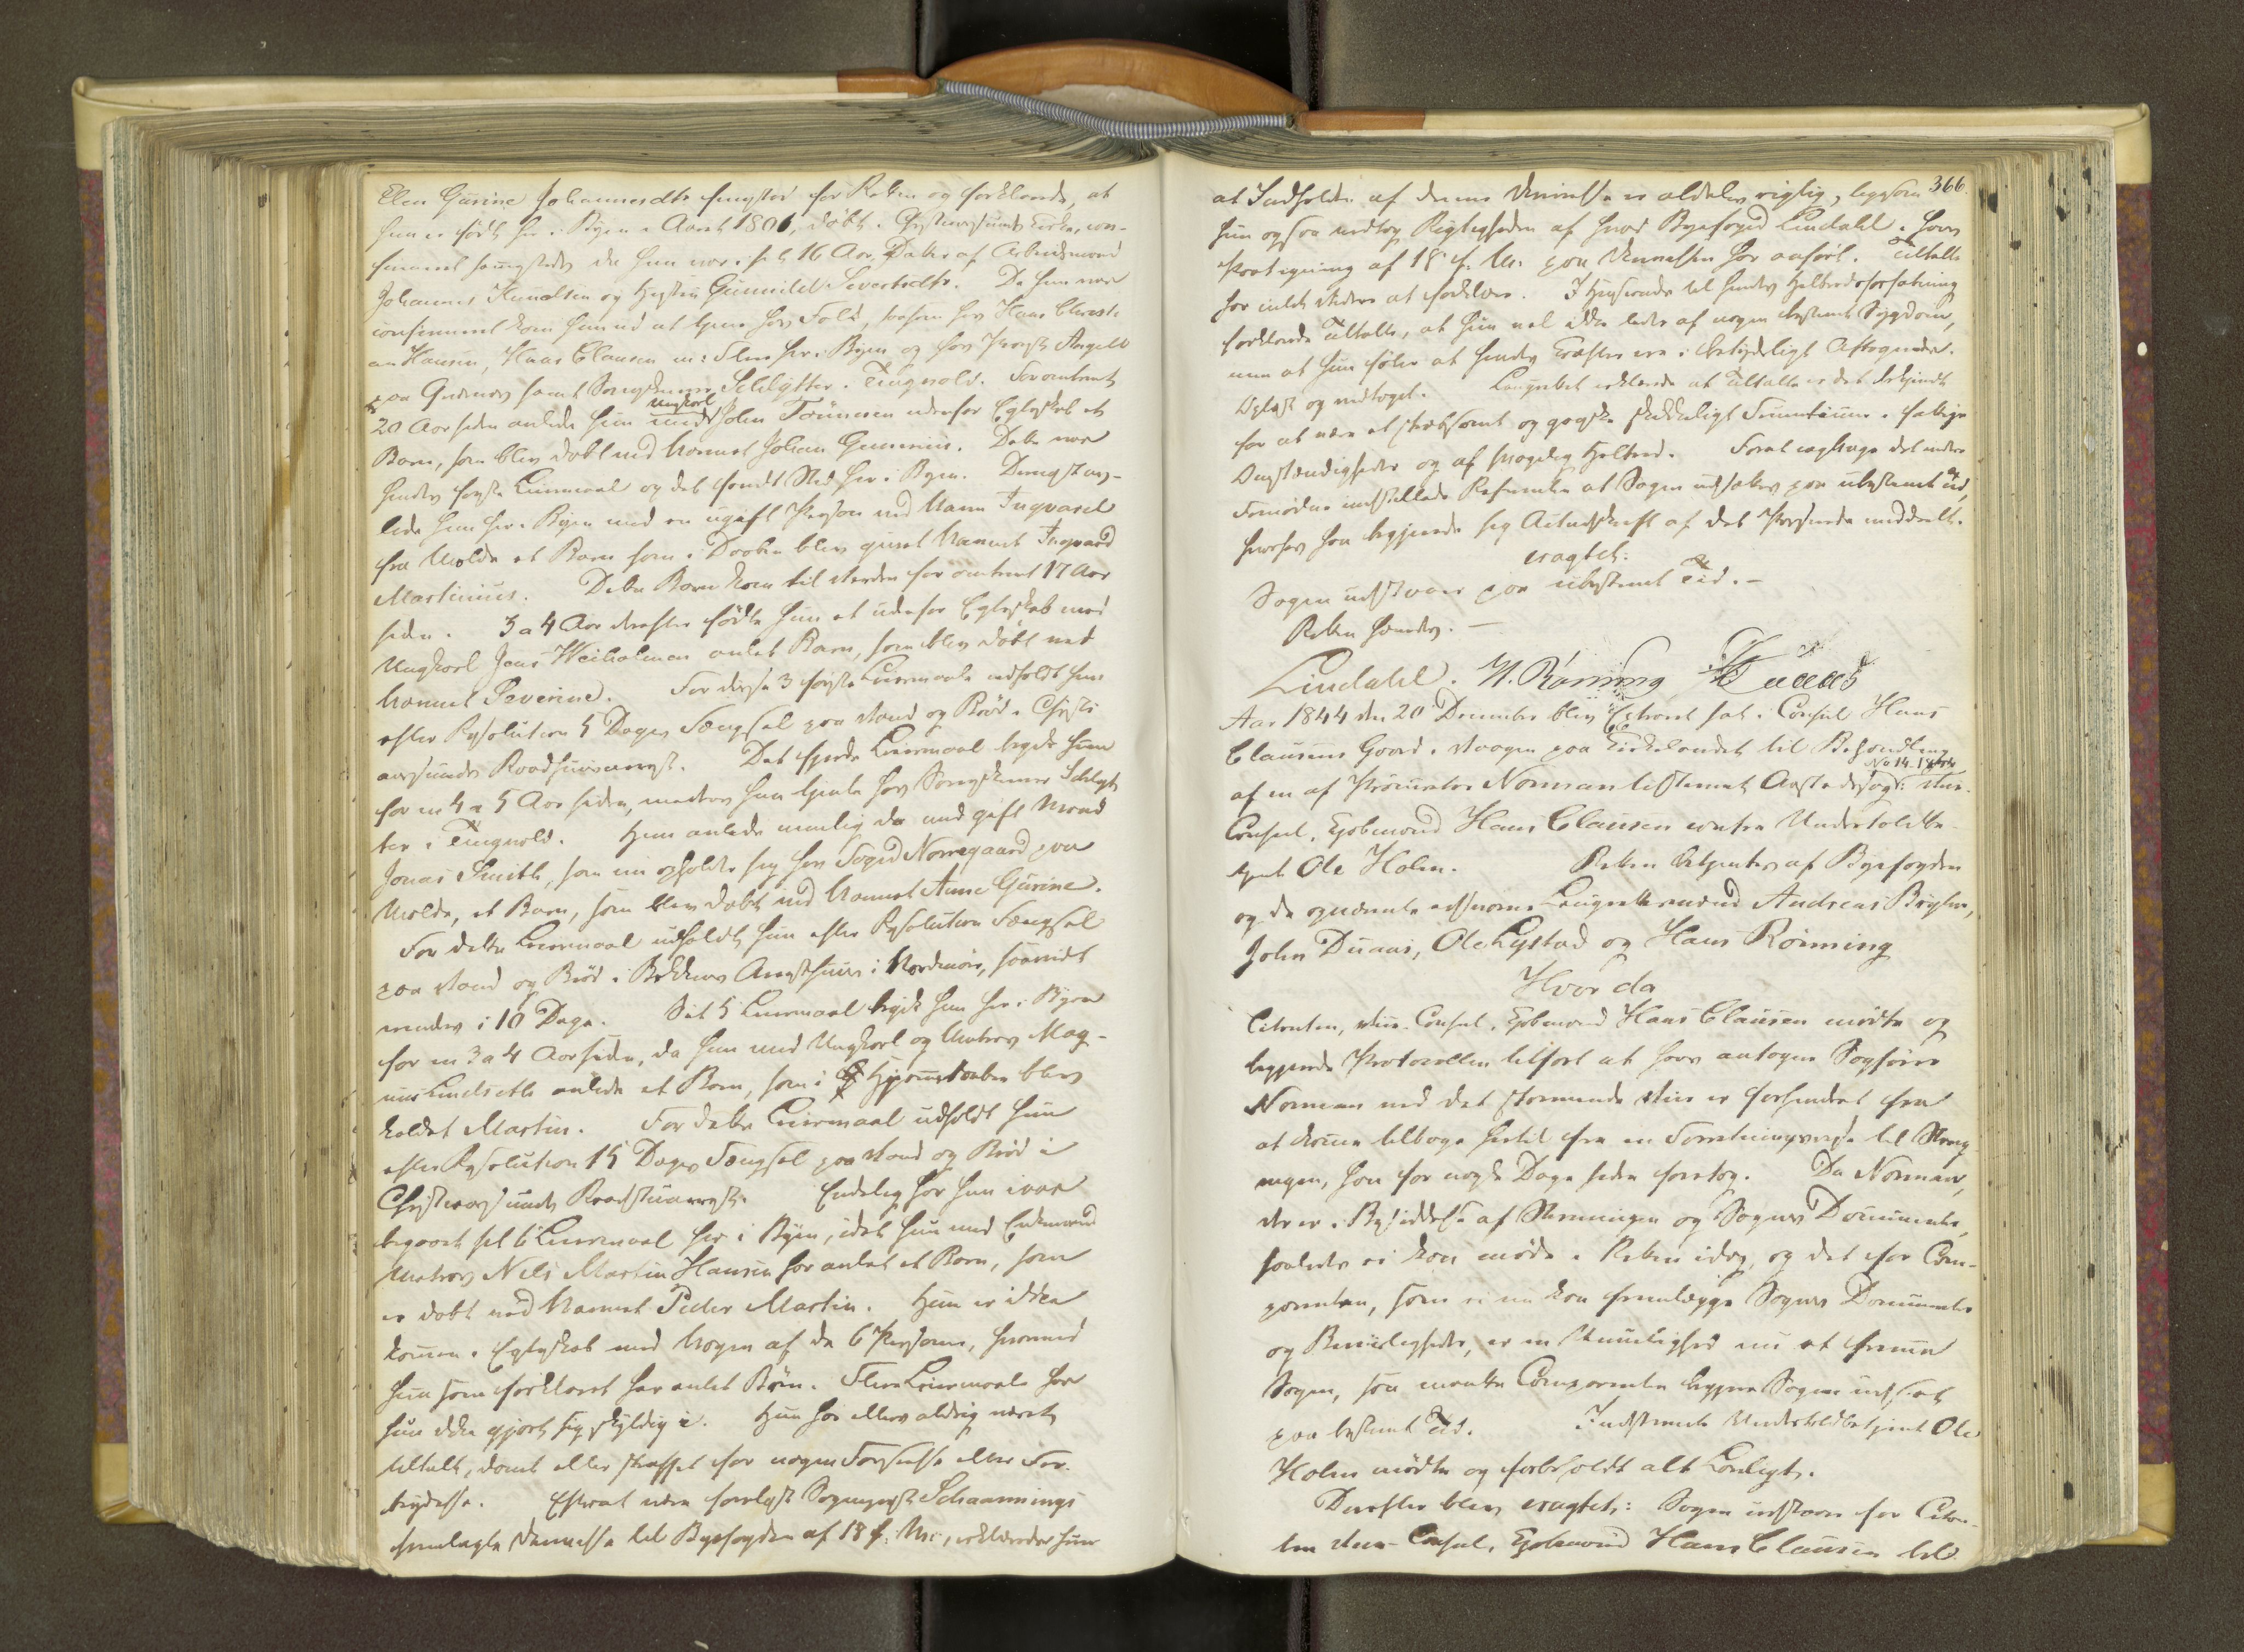 Elen Gurine Johannesdtr fremstod for Retten og forklarede, at
hun er født her i Byen i Aaret 1801, døbt i Christianssunds Kirke, con-
firmeret sammesteds da hun var i sit 16 Aar, Datter af Arbeidsmand
Johannes Knudsen og Hustru Gunnild Sivertsdtr. Da hun var
confirmeret kom hun ud at tjene hos Folk, saasom hos Hans Christi-
an Hansen, Hans Clausen m: Flere her i Byen og hos Provst Angell
paa samt Sorenskriver Schlytter i Tingvold. For omtrent
20 Aar siden avlede hun med Ungkarl John Tønnesen udenfor Egteskab et
Barn, som blev døbt med Navnet Johan Gunnerius. Dette var
hendes første Leiermaal og det fandt Sted her i Byen. Dernæst av-
lede hun her i Byen med en ugift Person ved Navn Ingvard
fra Molde et Barn som i Daaben blev givet Navnet Ingvard
Martinius. Dette Barn kom til Verden for omtrent 17 Aar
siden. 3 a 4 Aar derefter fødte hun et udenfor Egteskab med
Ungkarl Jens Weiholmen avlet Barn, som blev døbt med
Navnet Severine. For disse 3 første Leiermaale udholdt hun
efter Resolution 5 Dages Fængsel paa Vand og Brød i Christi-
anssunds Raadhuusarrest. Det fjerde Leiermaal begik hun
for en 4 a 5 Aar siden, medens hun tjente hos Sorenskriver Schlyt-
ter i Tingvold. Hun avlede nemlig da med gift Mand
Jonas Smith, som nu opholder sig hos Foged Norregaard paa
Molde, et Barn, som blev døbt ved Navnet Anne Gurine.
For dette Leiermaal udholdt hun efter Resolution Fængsel
paa Vand og Brød i Arresthuus i Nordmøre, saavidt
mindes i 10 Dage. Sit 5 Leiermaal begik hun her i Byen
for en 3 a 4 Aar siden, da hun med Ungkarl og Matros Mag-
nus Lindseth avlede et Barn, som i Hjemmedaaben blev
kaldet Martin. For dette Leiermaal udholdt hun
efter Resolution 15 Dages Fængsel paa Vand og Brød i
Christianssunds Raadstuearrest. Endelig har hun ivaar
begaaet sit 6 Leiermaal her i Byen, idet hun med Enkemand
Matros Nils Martin Hansen har avlet et Barn, som
er døbt ved Navnet Peder Martin. Hun er ikke
kommen i Egteskab med Nogen af de 6 Personer, hvormed
hun som forklaret har avlet Børn. Flere Leiermaale har
hun ikke gjort sig skyldig i. Hun har ellers aldrig været
tiltalt, dømt eller straffet for nogen Forseelse eller For-
brydelse. Efterat være forelæst Sogneprest Schaannings
fremlagte Skrivelse til Byefogden af 18 f. M., erklærede hun
366.
at Indholdet af denne Skrivelse er aldeles rigtig, ligesom
hun ogsaa vedtog Rigtigheden af hvad Byefoged Lindahl i hans
Paategning af 18 f. M. paa Skrivelsen har anført. Tiltalte
har intet videre at forklare. I Henseende til hendes Helbredsforfatning
forklarede Tiltalte, at hun vel ikke lider af nogen bestemt Sygdom,
men at hun føler at hendes Kræfter ere i betydeligt Aftagende.
Oplæst og vedtaget. Laugrettet erklærede at Tiltalte er det bekjendt
for at være et stræbsomt og ganske skikkeligt Fruentimmer i fattige
Omstændigheder og af svagelig Helbred. Forat iagttage det videre
Fornødne indstillede Referenten at Sagen udsættes paa ubestemt Tid,
hvorhos han begjerede sig Actudskrift af det Passerede meddeelt.
eragtet:
Sagen udstaaer paa ubestemt Tid. –
Retten hævet. –
Lindahl. H. Rønning Duaas
Aar 1844 den 20 December blev Extraret sat i Consul Hans
Clausens Gaard i Vaagen paa Kirkelandet til Behandling
No 14. 1844
af en af Procurator Norman bestemt Vice-
Consul, Kjøbmand Hans Clausen contra Undertoldbe-
tjent Ole Holm. Retten betjentes af Byefogden
og de opnævnte edsvorne Laugrettemænd Andreas
John Duaas, Ole Lystad og Hans Rønning
Hvor da
Citanten, Vice-Consul, Kjøbmand Hans Clausen mødte og
begjerede Protocollen tilført at hans antagne Sagfører
Norman ved det stormende Veir er forhindret fra
at komme tilbage hertil fra en Forretningsreise til
han for nogle Dage siden foretog. Da Norman,
der er i Besiddelse af Stevningen og Sagens Documenter,
saaledes ei kan møde i Retten idag, og det for Com-
parenten, som ei nu kan fremlægge Sagens Documenter
og Beviisligheder, er en Umuelighed nu at fremme
Sagen, saa maatte Comparenten begjere Sagen udsat
paa bestemt Tid. Indstevnte Undertoldbetjent Ole
Holm mødte og forbeholdt alt Lovligt.
Derefter blev eragtet: Sagen udstaaer for Citan-
ten Vice-Consul, Kjøbmand Hans Clausen til